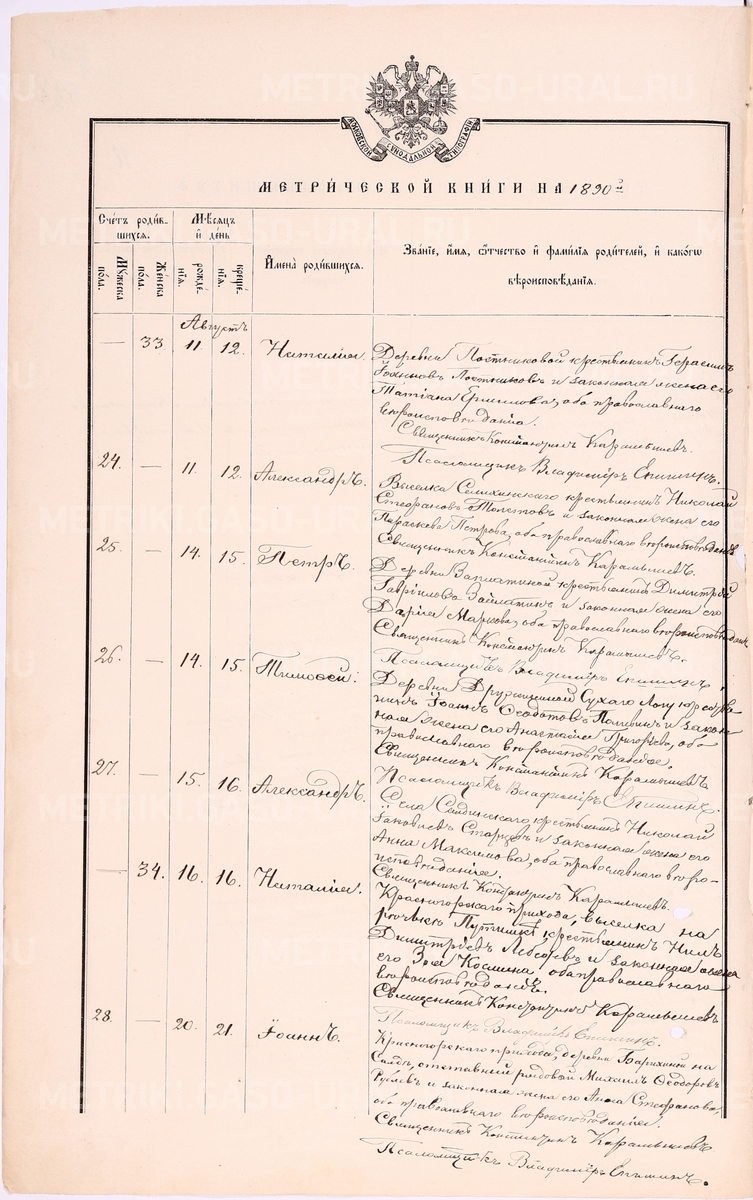 МОСКОВСКОЙ СѴНОДАЛЬНОЙ ТИПОГРАФІИ
МЕТРИЧЕСКОЙ КНИГИ НА 1890 г.
Счетъ родившихся.
Мѣсяцъ и день
Имена родившихся.
Званіе, имя, отчество и фамилія родителей, и какого вѣроисповѣданія.
Мужеска пола.
Женска пола.
рожденія.
крещенія.
Августъ
— 33 11 12. Наталія.
Деревни Постниковой крестьянинъ Герасимъ
Постниковъ и законная жена его
Татіана Ермилова, оба православнаго
вѣроисповѣданія.
Священникъ Константинъ Карамышевъ.
Псаломщикъ Владиміръ Епишинъ.
24. — 11. 12. Александръ.
Выселка крестьянинъ Николай
Стефановъ Толстовъ и законная жена его
Параскева Петрова, оба православнаго вѣроисповѣданія
Священникъ Константинъ Карамышевъ.
25. — 14. 15. Петръ.
Деревни крестьянинъ Димитрій
Гавріиловъ и законная жена его
Дарія Маркова, оба православнаго вѣроисповѣданія
Священникъ Константинъ Карамышевъ.
Псаломщикъ Владиміръ Епишинъ.
26. — 14. 15. Тимоѳей.
Деревни Сухаго Логу крестья-
нинъ Іоаннъ Ѳеодотовъ и закон-
ная жена его Анастасія Григорьева, оба
православнаго вѣроисповѣданія.
Священникъ Константинъ Карамышевъ
Псаломщикъ Владиміръ Епишинъ.
27. — 15. 16. Александръ.
Села крестьянинъ Николай
Іаковлевъ Старцевъ и законная жена его
Анна Максимова, оба православнаго вѣро-
исповѣданія.
Священникъ Константинъ Карамышевъ.
— 34. 16. 16. Наталія.
Красногорскаго прихода, выселка на
рѣчькѣ крестьянинъ Нилъ
Димитріевъ и законная жена
его Зоя Космина, оба православнаго
вѣроисповѣданія.
Священникъ Константинъ Карамышевъ
28. — 20. 21. Іоаннъ.
Псаломщикъ Владиміръ Епишинъ.
Красногорскаго прихода, деревни на
Салдѣ, отставной рядовой Михаилъ Ѳеодоровъ
и законная жена его Анна Стефанова,
оба православнаго вѣроисповѣданія.
Священникъ Константинъ Карамышевъ
Псаломщикъ Владиміръ Епишинъ.